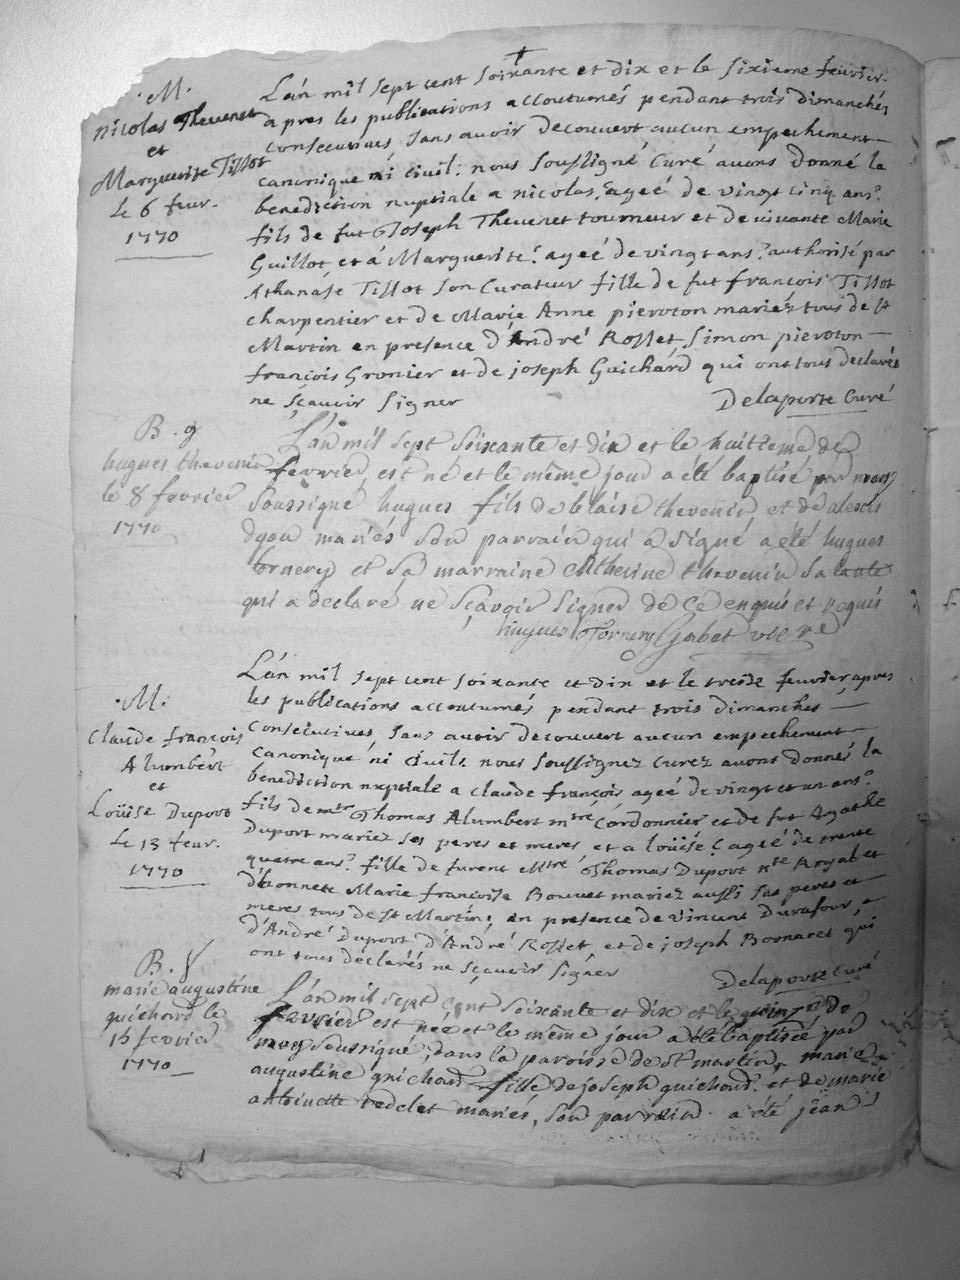 M.
Nicolas Thevenet
et
Marguerite Tissot
Le 6 fevr.
1770
L'an mil sept cent soixante et dix et le sixieme fevrier
apres les publications accoutumés pendant trois dimanches
consecutives sans avoir decouvert aucun empechement
canonique ni civil: nous soussigné Curé avons donné la
benediction nuptiale a nicolas, ageé de vingt cinq ans
fils de fut Joseph Thevenet tourneur et de vivante Marie
Guillot et á Marguerite ageé de vingt ans authorisé par
Athanase Tissot son Curateur fille de fut françois Tissot
charpentier et de Marie Anne pieroton mariéz tous de st
Martin en presence d'André Rosset, Simon pieroton
françois Gronier et de joseph Guichard qui ont tous declarés
ne sçavoir signer
Delaporte Curé
B. 9
hugues thevenin
le 8 fevrier
1770
L'an mil sept soixante et dix et le huitieme de
fevrier est né et le même jour a été baptisé par nous
soussigné hugues fils de blaise thevenin et de alexis
dyou mariés son parrain qui a signé a été hugues
tornery et sa marraine Catherine thevenin sa tante
qui a declaré ne sçavoir signer de ce enquis et requis
hugues Tornery Gabet vicre
M.
Claude françois
Alumbert
et
Loüise Duport
Le 13 fevr.
1770
L'an mil sept cent soixante et dix et le treize fevrier, apres
les publications accoutumés pendant trois dimanches
consecutives, sans avoir decouvert aucun empechement
canonique ni civil: nous soussignez Curez avons donnés la
benediction nuptiale a claude françois ageé de vingt et un ans
fils de mtre Thomas Alumbert mtre Cordonnier et de fut Agathe
Duport mariez ses peres et meres et a loüise ageé de trente
quatre ans fille de furent Mtre Thomas Duport Nte Royal et
d'honnete Marie françoise Bouvet mariez aussi ses peres et
meres tous de St Martin; en presence de vincent Durafour,
d'André Duport d'André Rosset, et de joseph Bornaret qui
ont tous déclarés ne sçavoir signer
Delaporte Curé
B.
marie augustine
guichard le
15 fevrier
1770
L'an mil sept cent soixante et dix et le quinze de
fevrier est née et le même jour a été baptisée par
moy soussigné, dans la paroisse de st martin, marie
augustine guichard fille de joseph guichard et de marie
antoinette redelet mariés, son parrain a été jean